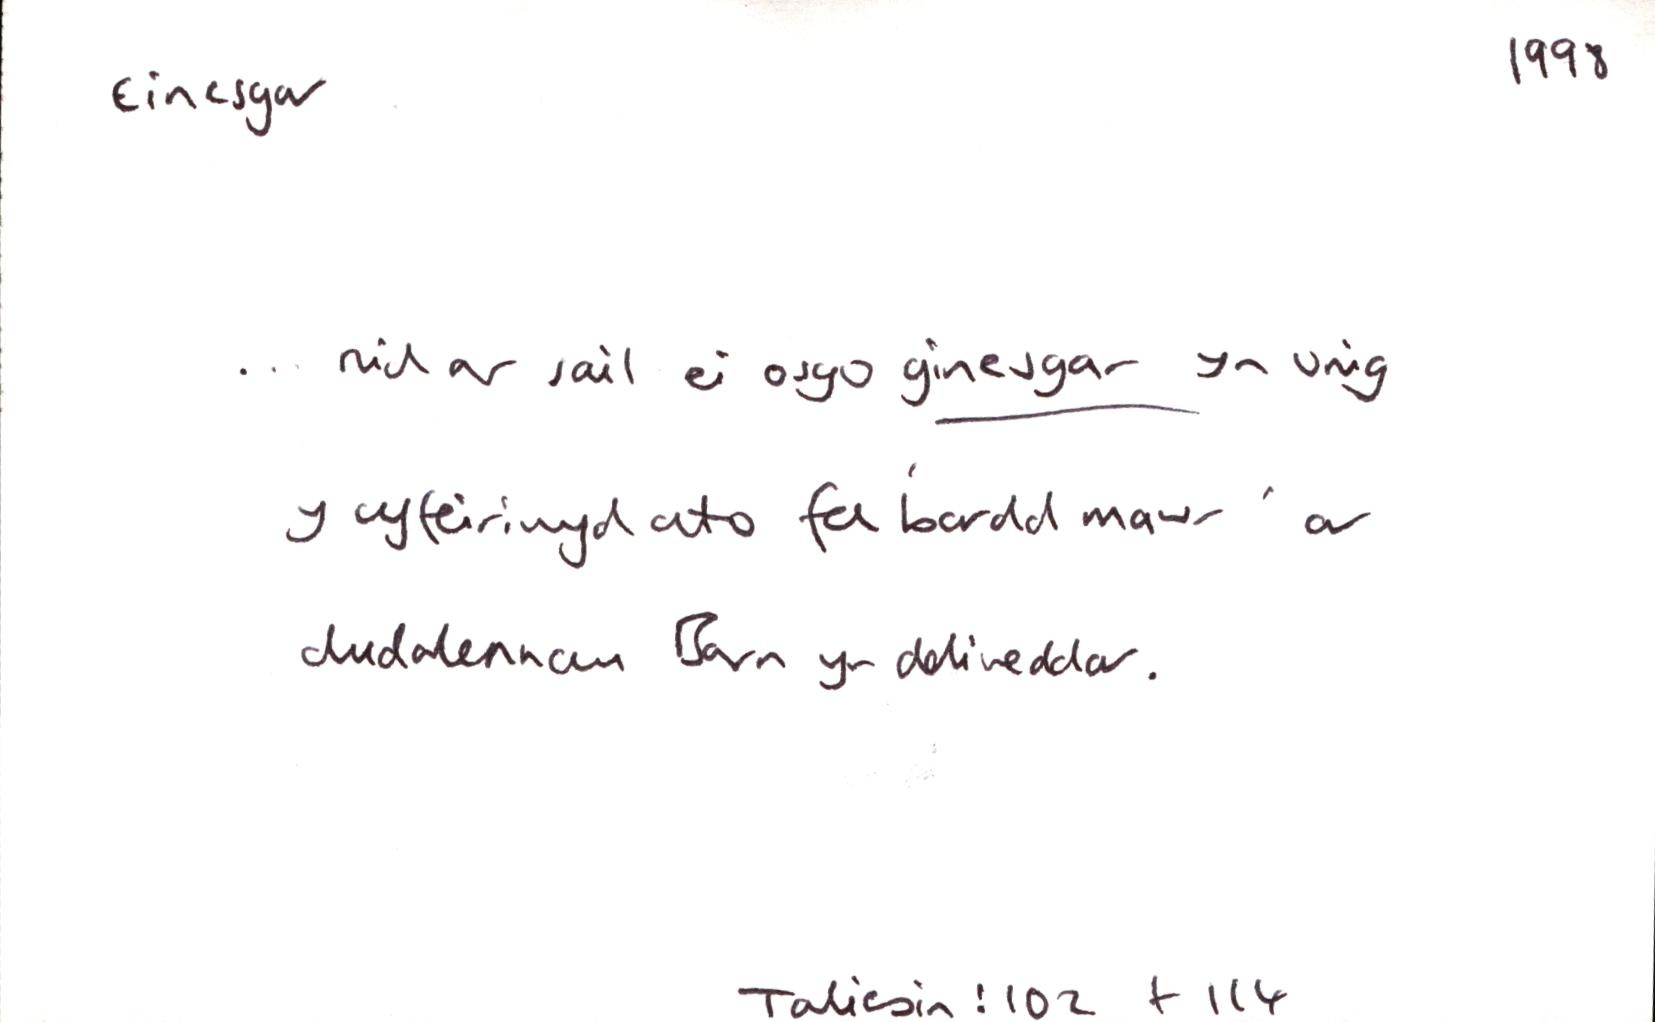 Einesgar
1998
... nid ar sail ei osgo ginesgar yn unig
y cyfeiriwyd ato fel 'bardd mawr' ar
dudalennau Barn yn ddiweddar.
Taliesin : 102 t 114